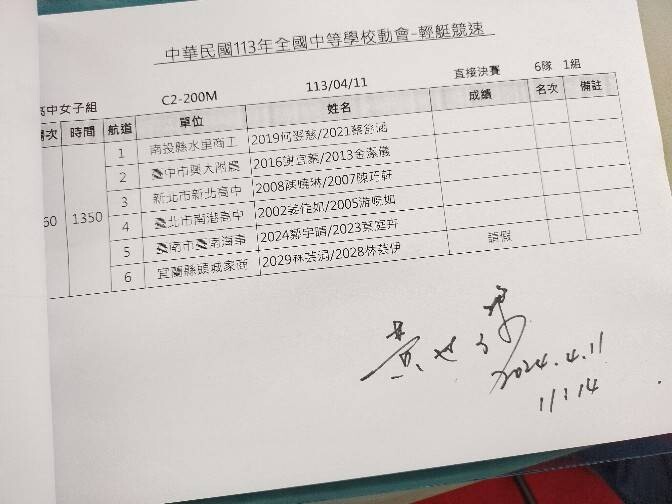 中華民國113年全國中等學校動會-輕艇競速
高中女子組 C2-200M 113/04/11 直接決賽 6隊 1組
次 時間 航道 單位 姓名 成績 名次 備註
60 1350 1 南投縣水里商工 2019何翌慈/2021蔡舒涵
2 中市興大附農 2016謝宜蓁/2013金
3 新北市新北高中 2008陳曉琳/2007陳巧軒
4 北市南港高中 2002 /2005游
5 南市 南海 2024鄭宇晴/2023
6 宜蘭縣頭城家商 2029林芸涓/2028林 伊 請假
黃
2024.4.11
11:14